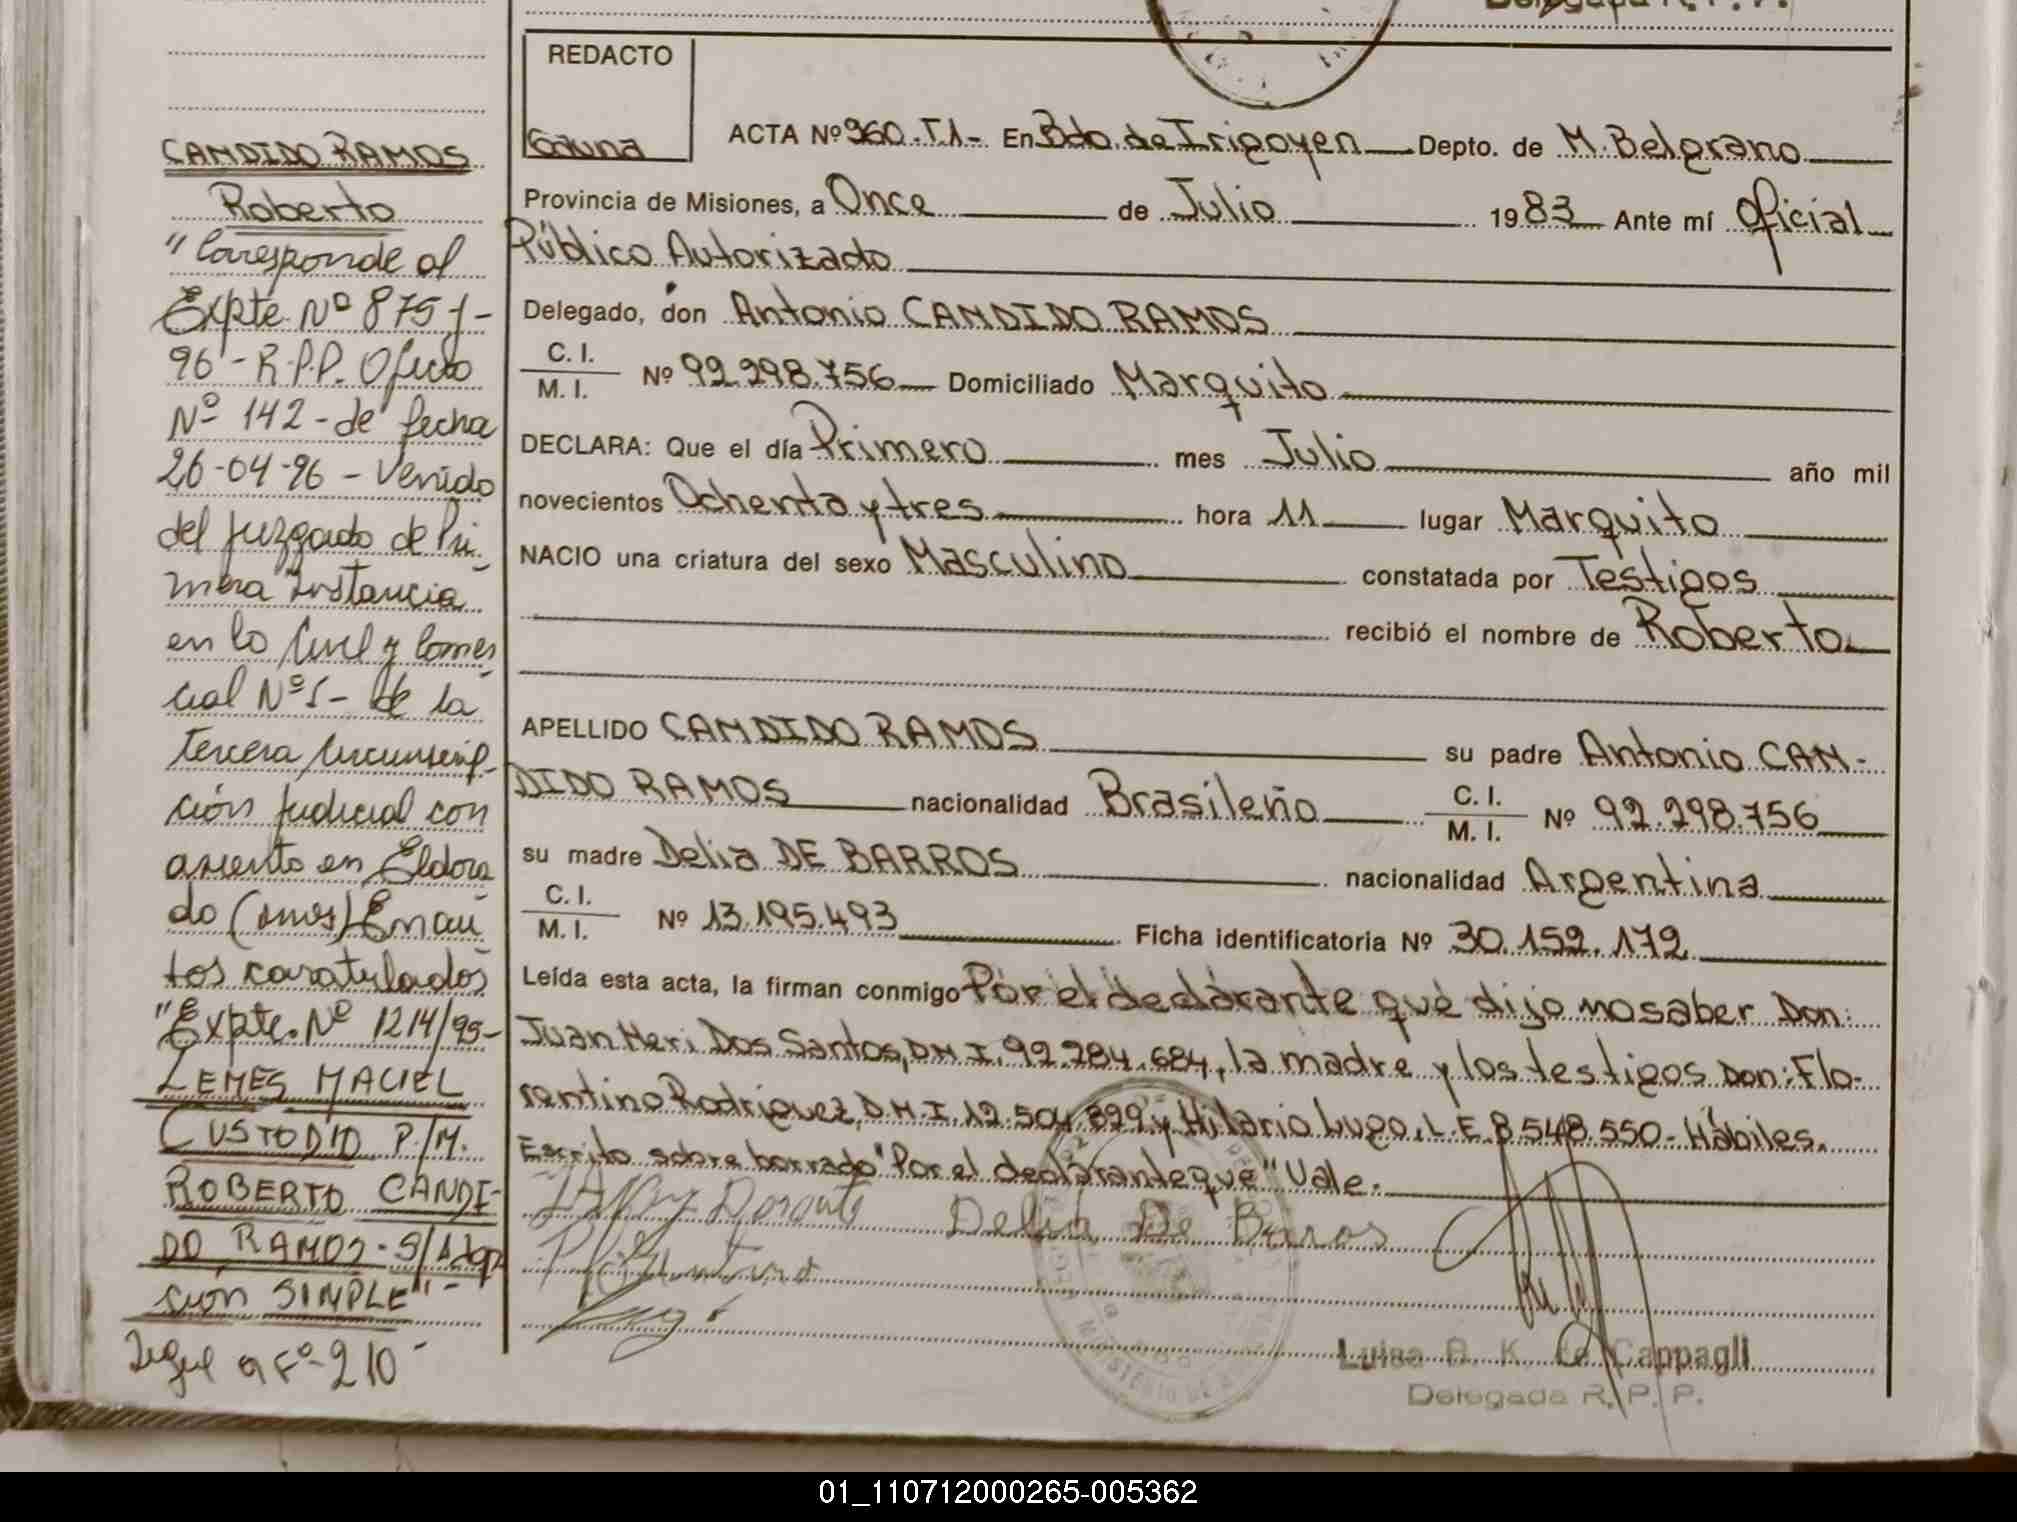 REDACTO
Gauna
ACTA Nº 960-T.1- En Bdo. de Irigoyen Depto. de M. Belgrano
Provincia de Misiones, a Once de Julio 1983 Ante mí Oficial
Público Autorizado
Delegado, don Antonio CANDIDO RAMOS
C. I.
M. I. Nº 92.298.756 Domiciliado Marquito
DECLARA: Que el día Primero mes Julio año mil
novecientos Ochenta y tres hora 11 lugar Marquito
NACIO una criatura del sexo Masculino constatada por Testigos
recibió el nombre de Roberto
APELLIDO CANDIDO RAMOS su padre Antonio CAN-
DIDO RAMOS nacionalidad Brasileño C. I. M. I. Nº 92.298.756
su madre Delia DE BARROS nacionalidad Argentina
C. I.
M. I. Nº 13.195.493 Ficha identificatoria Nº 30.152.172
Leída esta acta, la firman conmigo Por el declarante que dijo no saber Don:
Juan Neri Dos Santos, D.N.I. 92.284.684, la madre y los testigos Don: Flo-
rentino Rodriguez, D.N.I. 12.504.899 y Hilario Lugo, L.E. 8.548.550- Hábiles.
Escrito sobre borrado "Por el declarante que" Vale.
Delia De Barros
Luisa K. de Cappagli
Delegada R. P. P.
CANDIDO RAMOS
Roberto
"Corresponde al
Expte. Nº 875-j-
96-R.P.P. Oficio
Nº 142-de fecha
26-04-96-Venido
del Juzgado de Pri-
mera Instancia
en lo Civil y Comer
cial Nº 1- de la
tercera Circunscrip-
ción Judicial con
asiento en Eldora
do (Mnes) En au
tos caratulados
"Expte. Nº 1214/95-
LEMES MACIEL
CUSTODIO P/M.
ROBERTO CANDI-
DO RAMOS-S/Adop
ción SIMPLE"-
Sigue a Fº-210-
01_110712000265-005362